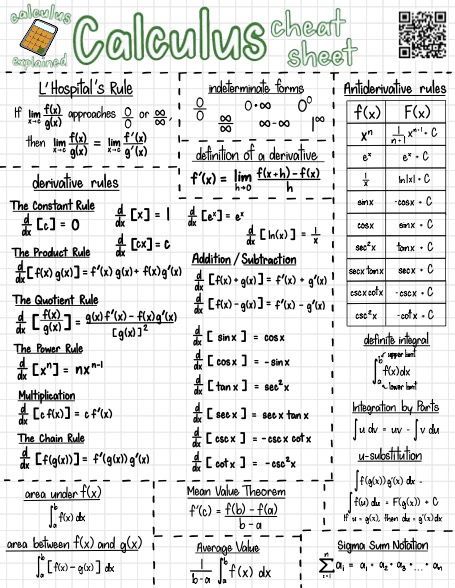 calculus
explained
Calculus cheat
sheet
L'Hospital's Rule
If lim x→c f(x)/g(x) approaches 0/0 or ∞/∞,
then lim x→c f(x)/g(x) = lim x→c f'(x)/g'(x)
indeterminate forms
0/0 0·∞ 0⁰
∞/∞ ∞-∞ 1^∞
definition of a derivative
f'(x) = lim h→0 (f(x+h) - f(x))/h
Antiderivative rules
f(x) F(x)
xⁿ 1/(n+1) xⁿ⁺¹ + C
eˣ eˣ + C
1/x ln|x| + C
sinx -cosx + C
cosx sinx + C
sec²x tanx + C
secx tanx secx + C
cscx cotx -cscx + C
csc²x -cotx + C
derivative rules
The Constant Rule
d/dx [c] = 0
d/dx [x] = 1
d/dx [cx] = c
d/dx [eˣ] = eˣ
d/dx [ln(x)] = 1/x
The Product Rule
d/dx [f(x) g(x)] = f'(x) g(x) + f(x) g'(x)
The Quotient Rule
d/dx [f(x)/g(x)] = (g(x) f'(x) - f(x) g'(x))/[g(x)]²
The Power Rule
d/dx [xⁿ] = nxⁿ⁻¹
Multiplication
d/dx [c f(x)] = c f'(x)
The Chain Rule
d/dx [f(g(x))] = f'(g(x)) g'(x)
Addition / Subtraction
d/dx [f(x) + g(x)] = f'(x) + g'(x)
d/dx [f(x) - g(x)] = f'(x) - g'(x)
d/dx [sinx] = cosx
d/dx [cosx] = -sinx
d/dx [tanx] = sec²x
d/dx [secx] = secx tanx
d/dx [cscx] = -cscx cotx
d/dx [cotx] = -csc²x
definite integral
upper limit
∫ₐᵇ f(x)dx
lower limit
Integration by Parts
∫u dv = uv - ∫v du
u-substitution
∫f(g(x)) g'(x) dx =
∫f(u) du = F(g(x)) + C
If u = g(x), then du = g'(x)dx
area under f(x)
∫ₐᵇ f(x) dx
area between f(x) and g(x)
∫ₐᵇ [f(x) - g(x)] dx
Mean Value Theorem
f'(c) = (f(b) - f(a))/(b-a)
Average Value
1/(b-a) ∫ₐᵇ f(x) dx
Sigma Sum Notation
∑ i=1 n aᵢ = a₁ + a₂ + a₃ + ... + aₙ